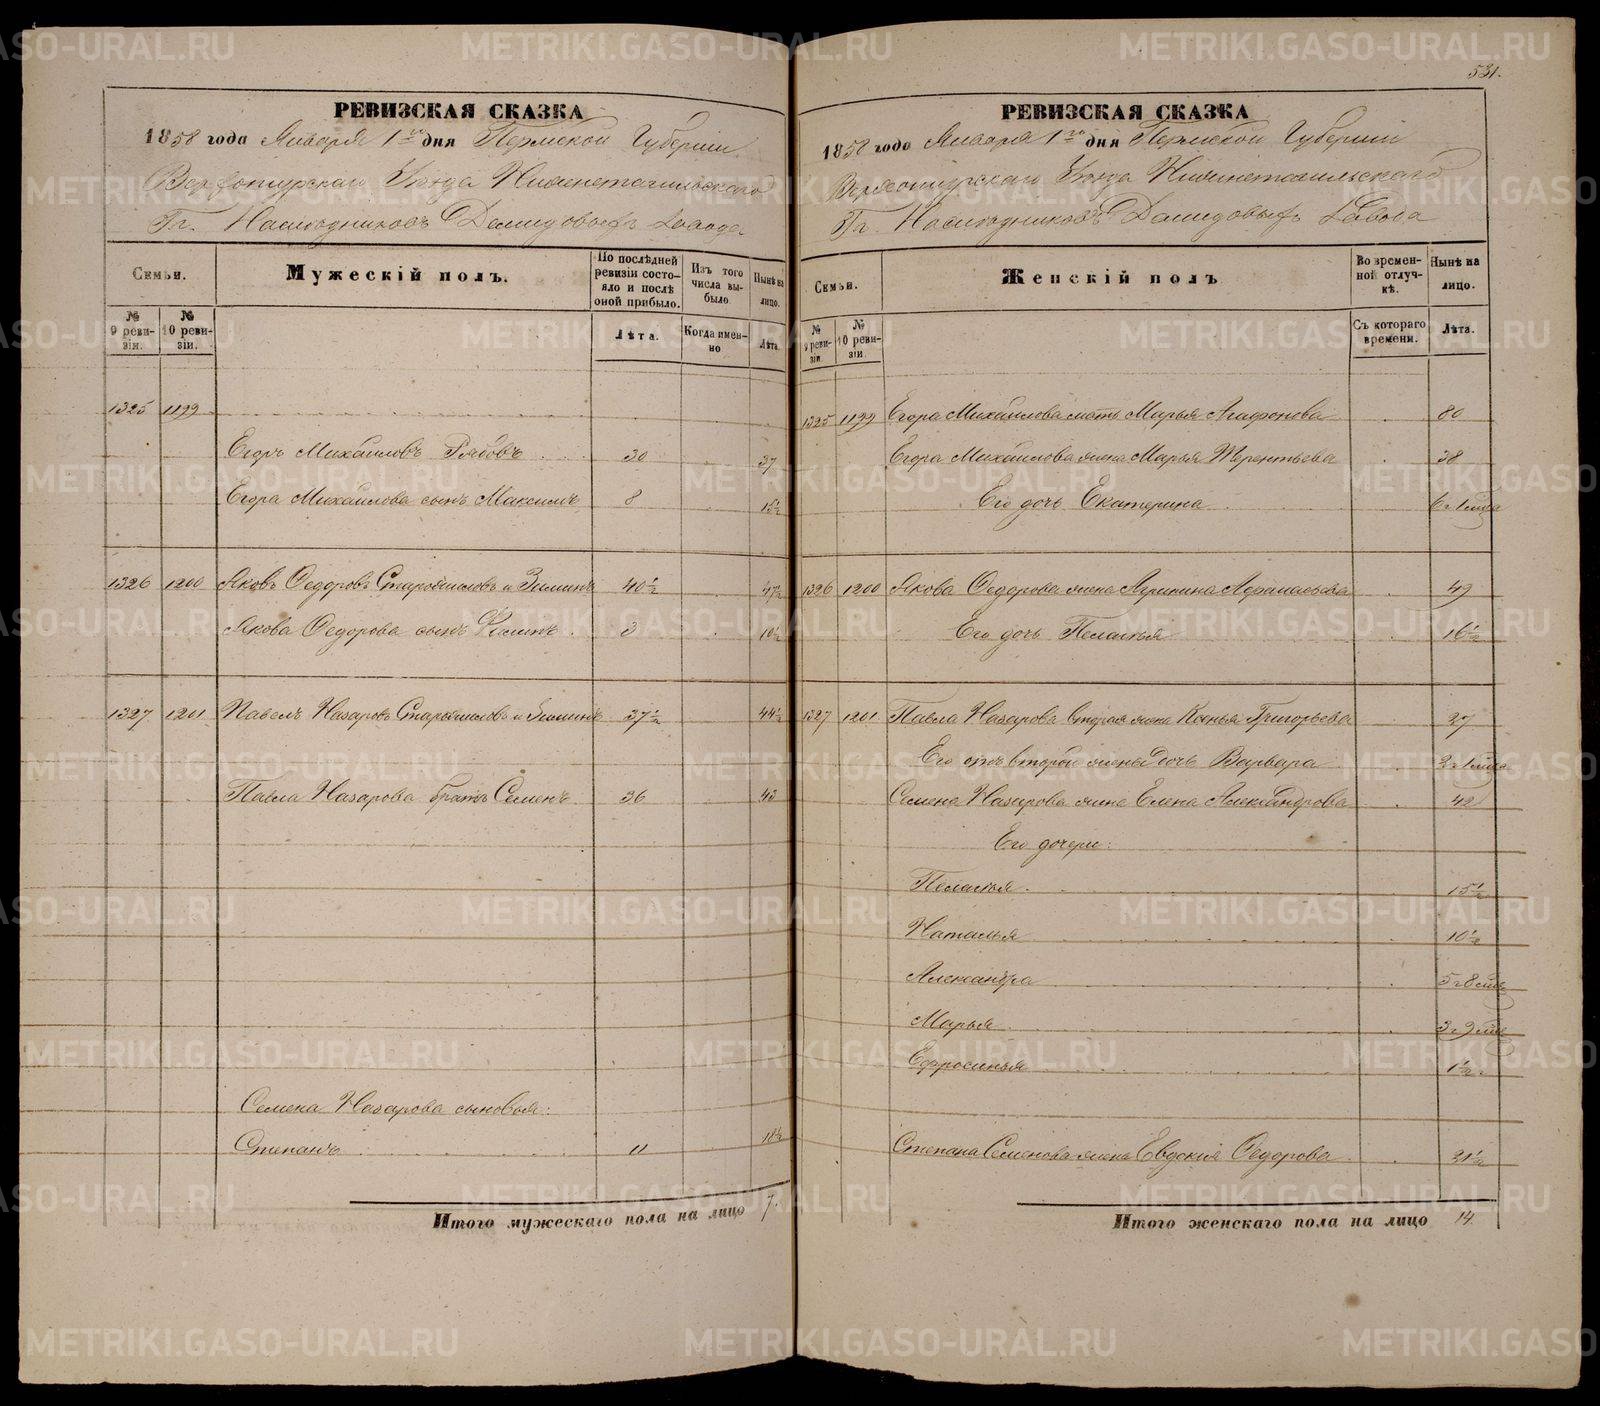 531.
РЕВИЗСКАЯ СКАЗКА
1858 года Января 1го дня Пермской Губерніи
Верхотурскаго Уѣзда Нижнетагильскаго
Гг. Наслѣдниковъ Демидовыхъ завода
Семьи. Мужескій полъ. По послѣдней ревизіи состояло и послѣ оной прибыло. Изъ того числа выбыло Нынѣ на лицо.
№ 9 ревизіи. № 10 ревизіи. Лѣта. Когда именно Лѣта.
1325 1199
Егоръ Михайловъ Рябовъ 30 37
Егора Михайлова сынъ Максимъ 8 15½
1326 1200 Яковъ Федоровъ и Зиминъ 40½ 47½
Якова Федорова сынъ 3 10½
1327 1201 Павелъ Назаровъ и Зиминъ 37½ 44½
Павла Назарова братъ Семенъ 36 43
Семена Назарова сыновья:
Степанъ 11 18½
Итого мужескаго пола на лицо 7.
РЕВИЗСКАЯ СКАЗКА
1858 года Января 1го дня Пермской Губерніи
Верхотурскаго Уѣзда Нижнетагильскаго
Гг. Наслѣдниковъ Демидовыхъ завода
Семьи. Женскій полъ Во временной отлучкѣ. Нынѣ на лицо.
№ 9 ревизіи № 10 ревизіи. Съ котораго времени. Лѣта.
1325 1199 Егора Михайлова мать Марья Агафонова 80
Егора Михайлова жена Марья Терентьева 38
Его дочь Екатерина
1326 1200 Якова Федорова жена 49
Его дочь Пелагья 16½
1327 1201 Павла Назарова вторая жена Григорьева 27
Его отъ второй жены дочь Варвара
Семена Назарова жена Елена Александрова 42
Его дочери:
Пелагья 15½
Наталья 10½
Александра 5 г 8 мцъ
Марья 3 г 9 мцъ
Ефросинья 1½
Степана Семенова жена Евдокія Федорова 21½
Итого женскаго пола на лицо 14.
METRIKI.GASO-URAL.RU